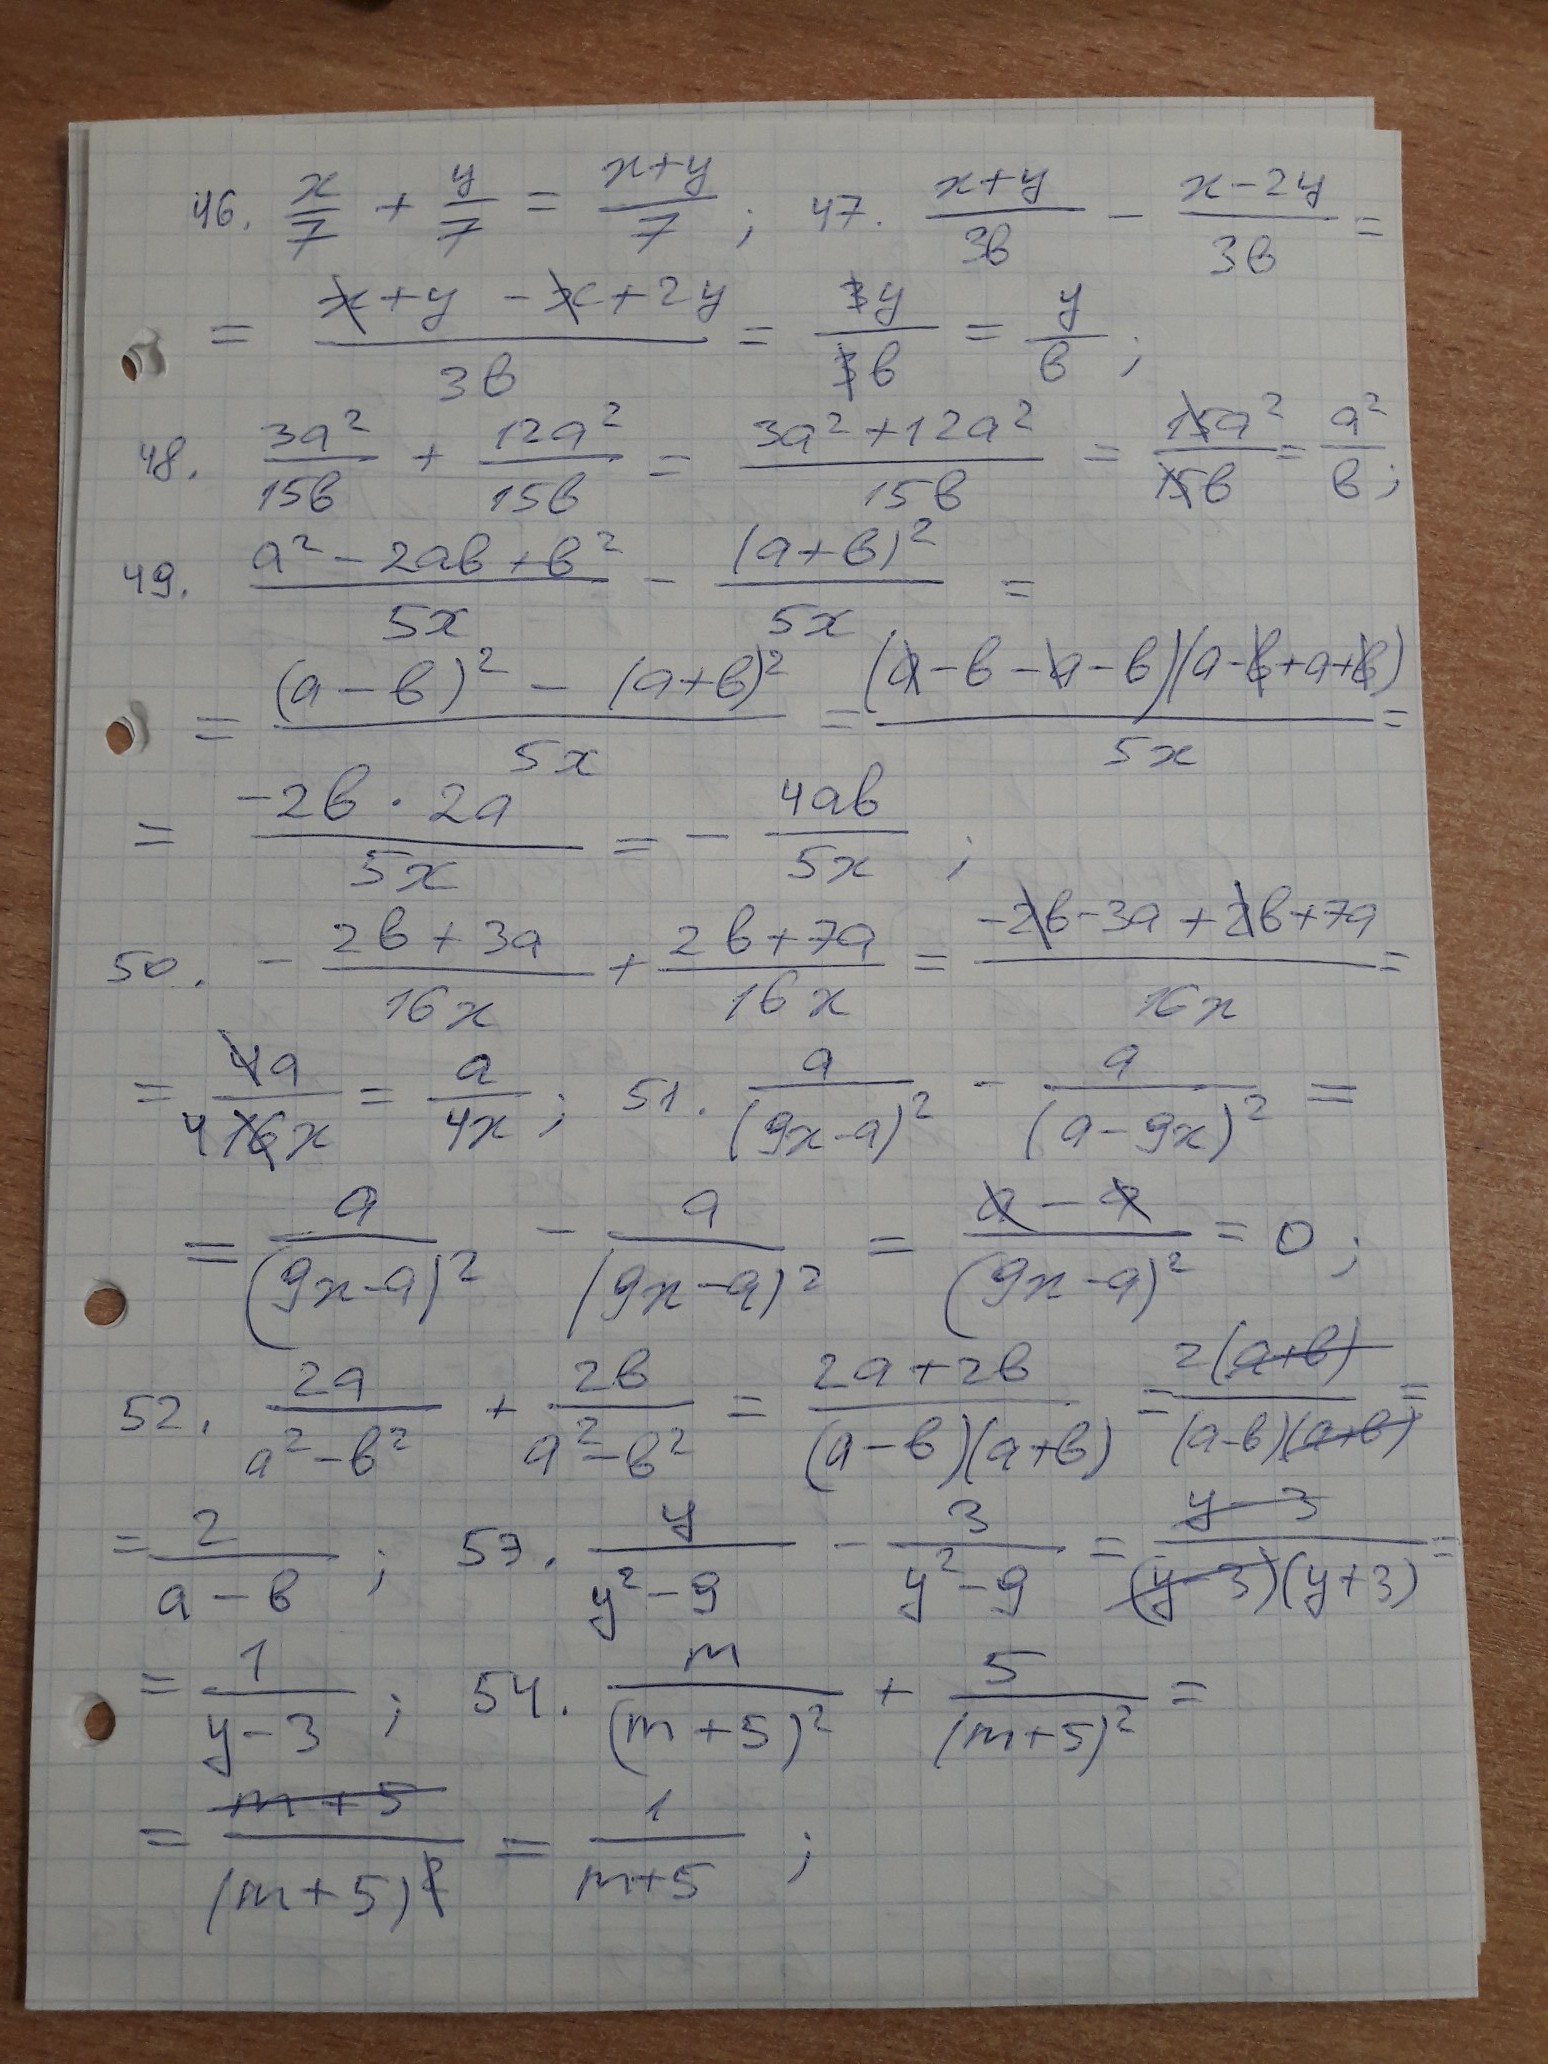 46. x/7 + y/7 = (x+y)/7 ; 47. (x+y)/3в - (x-2y)/3в =
= (x+y-x+2y)/3в = 3y/3в = y/в ;
48. 3a²/15в + 12a²/15в = (3a²+12a²)/15в = 15a²/15в = a²/в ;
49. (a²-2aв+в²)/5x - (a+в)²/5x =
= ((a-в)² - (a+в)²)/5x = (a-в-a-в)(a-в+a+в)/5x =
= (-2в · 2a)/5x = - 4aв/5x ;
50. - (2в+3a)/16x + (2в+7a)/16x = (-2в-3a+2в+7a)/16x =
= 4a/4 16x = a/4x ; 51. a/(9x-a)² - a/(a-9x)² =
= a/(9x-a)² - a/(9x-a)² = (a-a)/(9x-a)² = 0 ;
52. 2a/(a²-в²) + 2в/(a²-в²) = (2a+2в)/(a-в)(a+в) = 2(a+в)/(a-в)(a+в) =
= 2/(a-в) ; 53. y/(y²-9) - 3/(y²-9) = (y-3)/(y-3)(y+3) =
= 1/(y-3) ; 54. m/(m+5)² + 5/(m+5)² =
= (m+5)/(m+5)² = 1/(m+5) ;